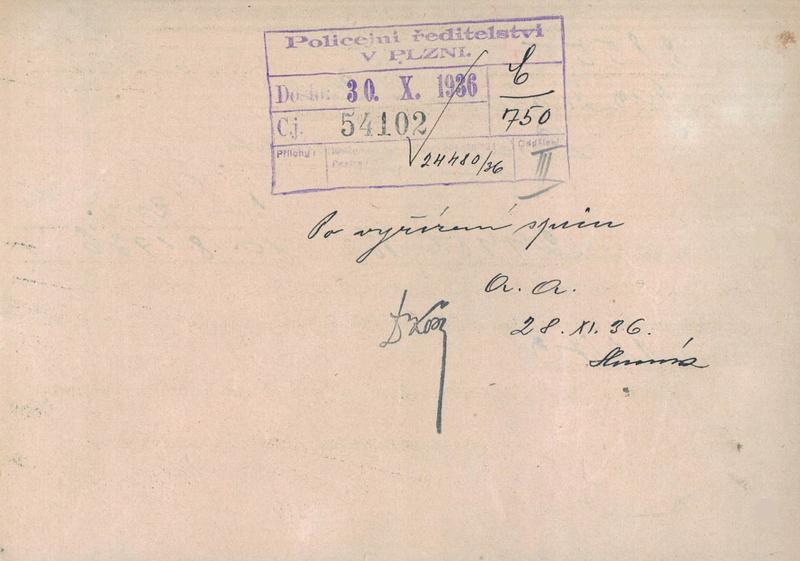 Policejní ředitelství
V PLZNI.
Došlo: 30. X. 1936
C
750
Čj. 54102
Přílohy:
24480/36
Oddělení
III
Po vyřízení spisu
a. a.
28. XI. 36.